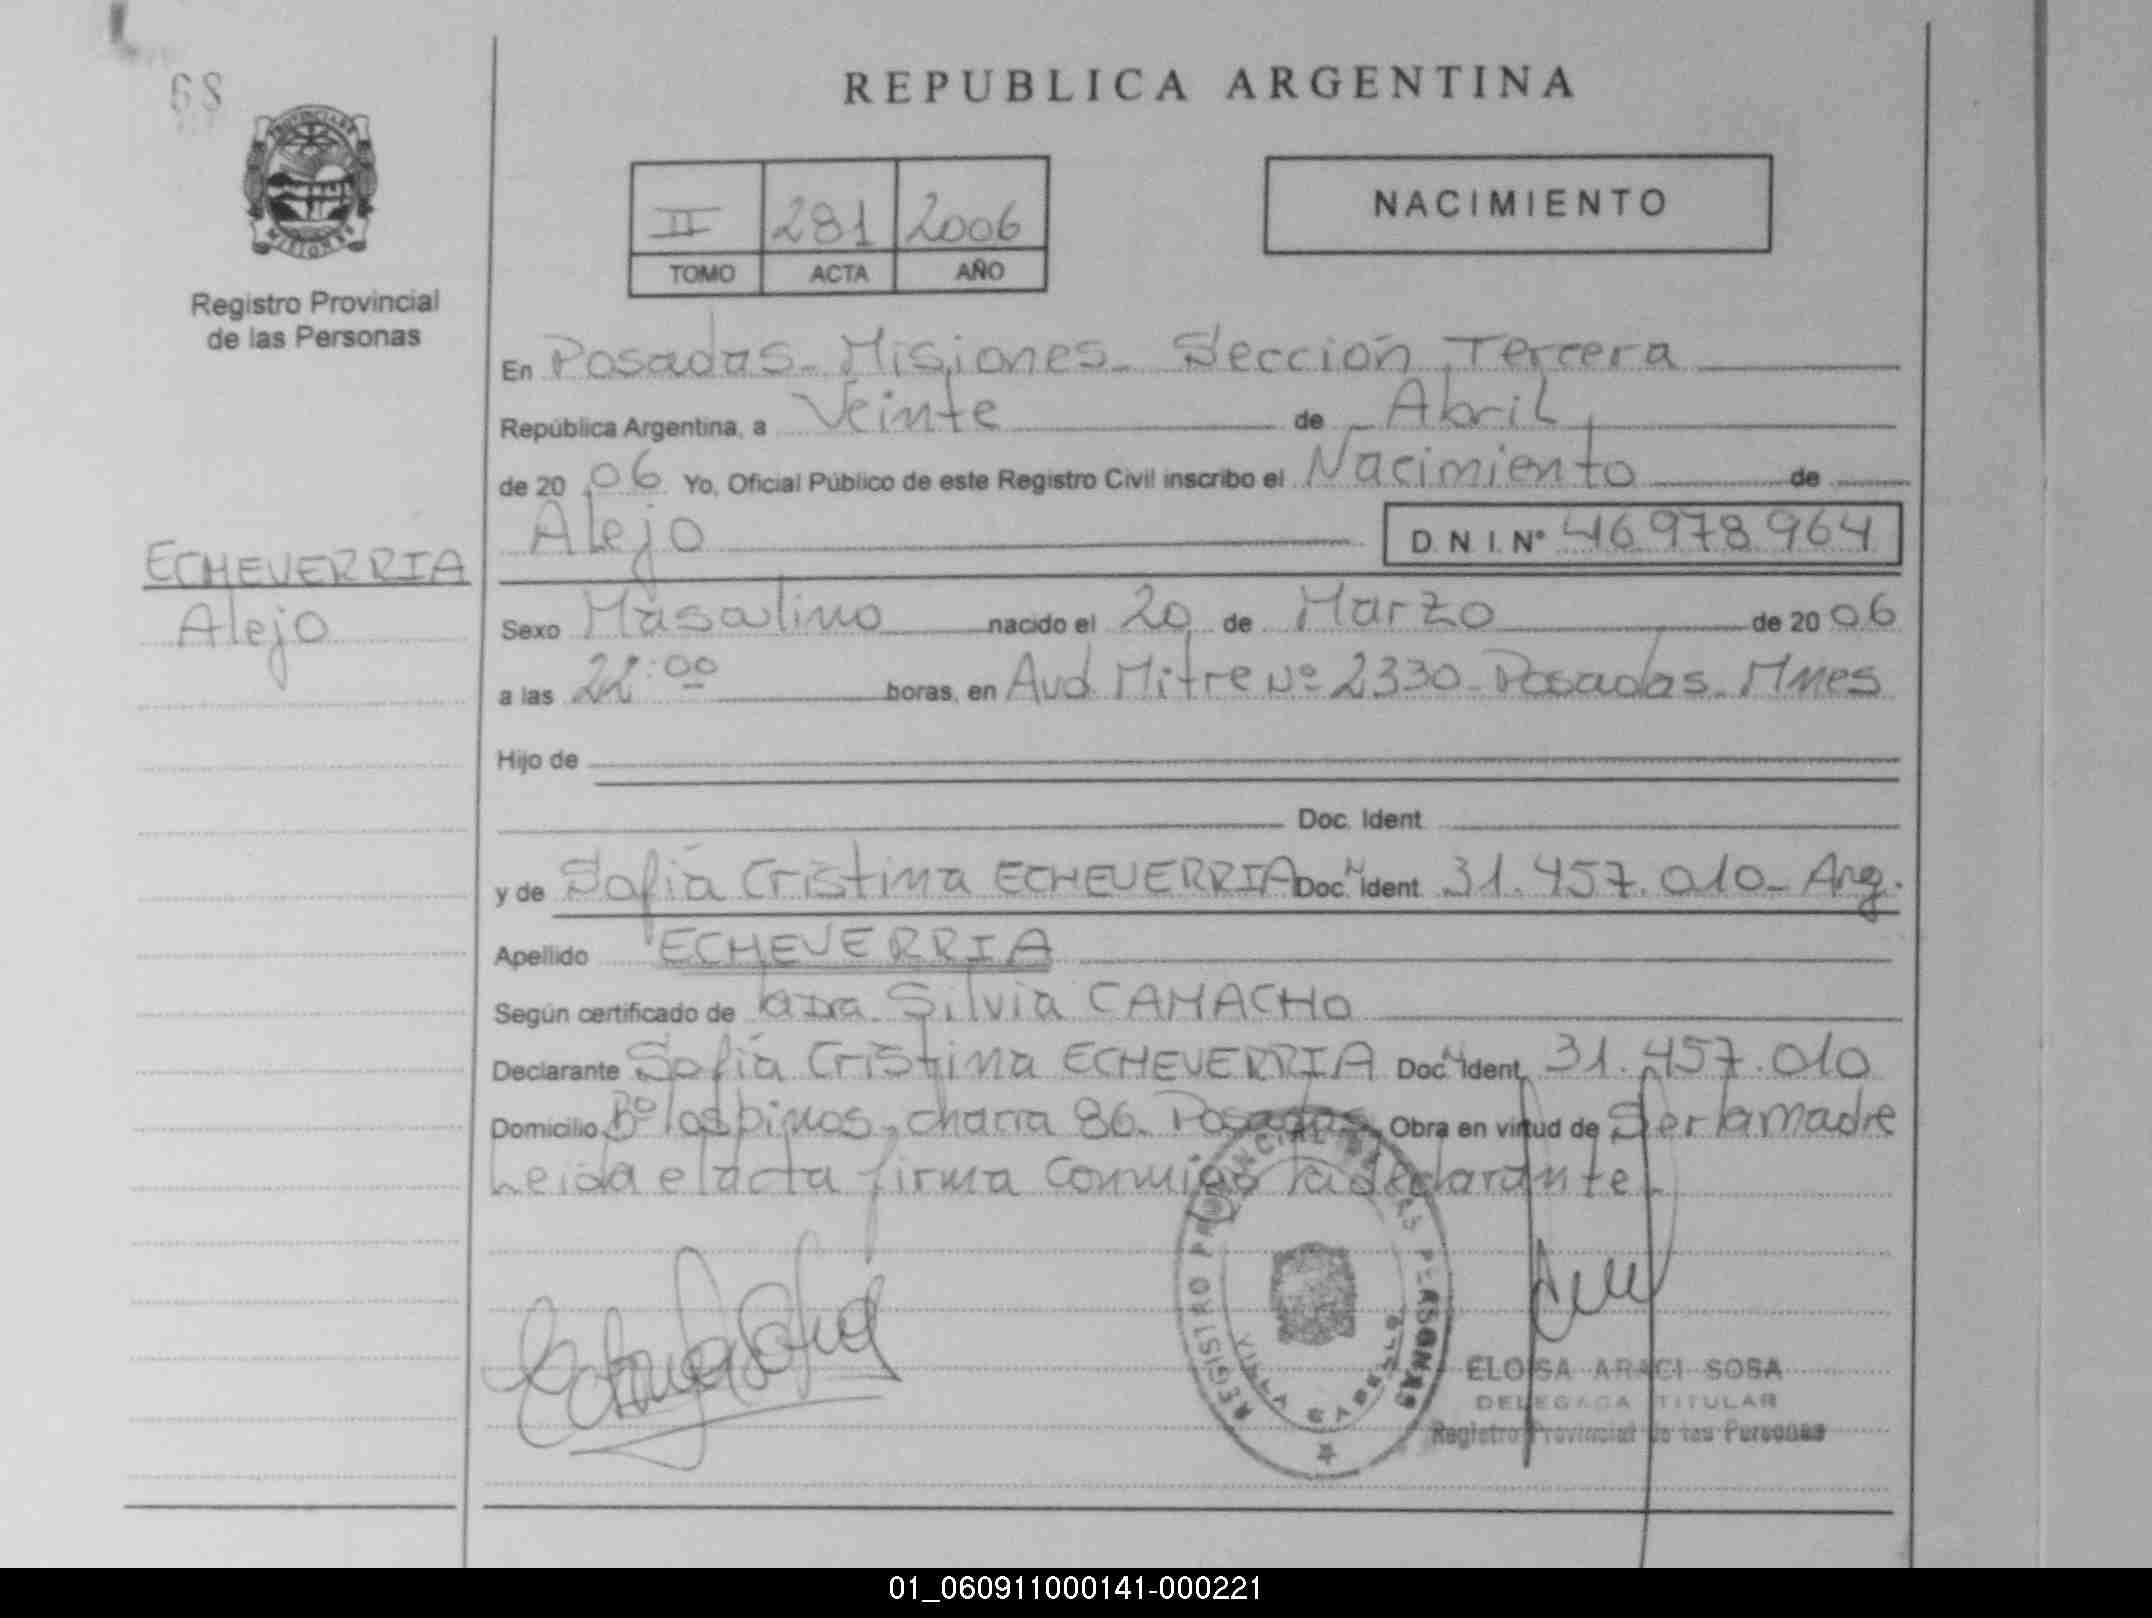 68
REPUBLICA ARGENTINA
PROVINCIA DE
MISIONES
Registro Provincial
de las Personas
II 281 2006
TOMO ACTA AÑO
NACIMIENTO
En Posadas - Misiones - Sección Tercera
República Argentina, a Veinte de Abril
de 20 06 Yo, Oficial Público de este Registro Civil inscribo el Nacimiento de
Alejo D.N.I. Nº 46.978.964
ECHEVERRIA
Alejo
Sexo Masculino nacido el 20 de Marzo de 20 06
a las 22:00 horas, en Avd. Mitre Nº 2330 - Posadas - Mnes
Hijo de
Doc. Ident.
y de Sofia Cristina ECHEVERRIA Doc. Ident. 31.457.010 - Arg.
Apellido ECHEVERRIA
Según certificado de Silvia CAMACHO
Declarante Sofia Cristina ECHEVERRIA Doc. Ident. 31.457.010
Domicilio Bº los pinos, chacra 86 - Posadas Obra en virtud de Ser la madre
Leida el acta firma Conmigo la declarante.
REGISTRO PROVINCIAL DE LAS PERSONAS
VILLA CABELLO
ELOISA ARACI SOSA
DELEGADA TITULAR
Registro Provincial de las Personas
01_060911000141-000221